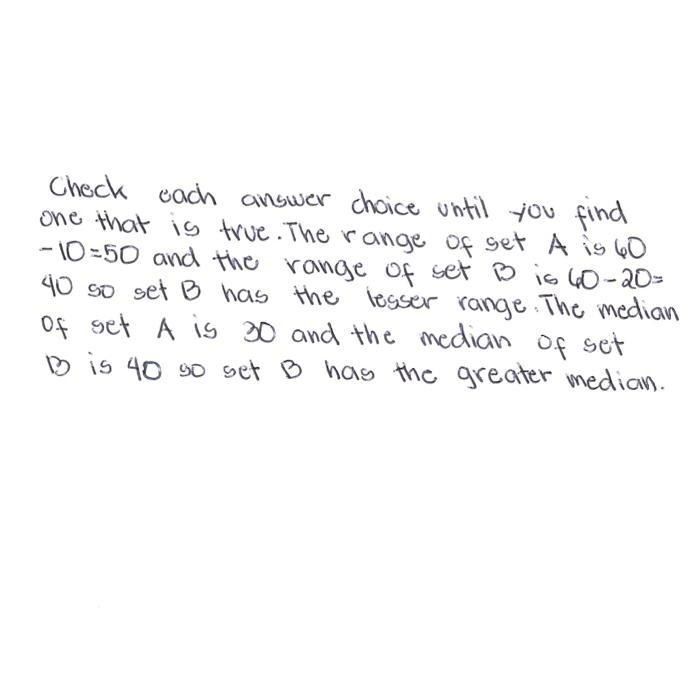 Check each answer choice until you find
one that is true. The range of set A is 60
-10=50 and the range of set B is 60-20=
40 so set B has the lesser range. The median
of set A is 30 and the median of set
B is 40 so set B has the greater median.